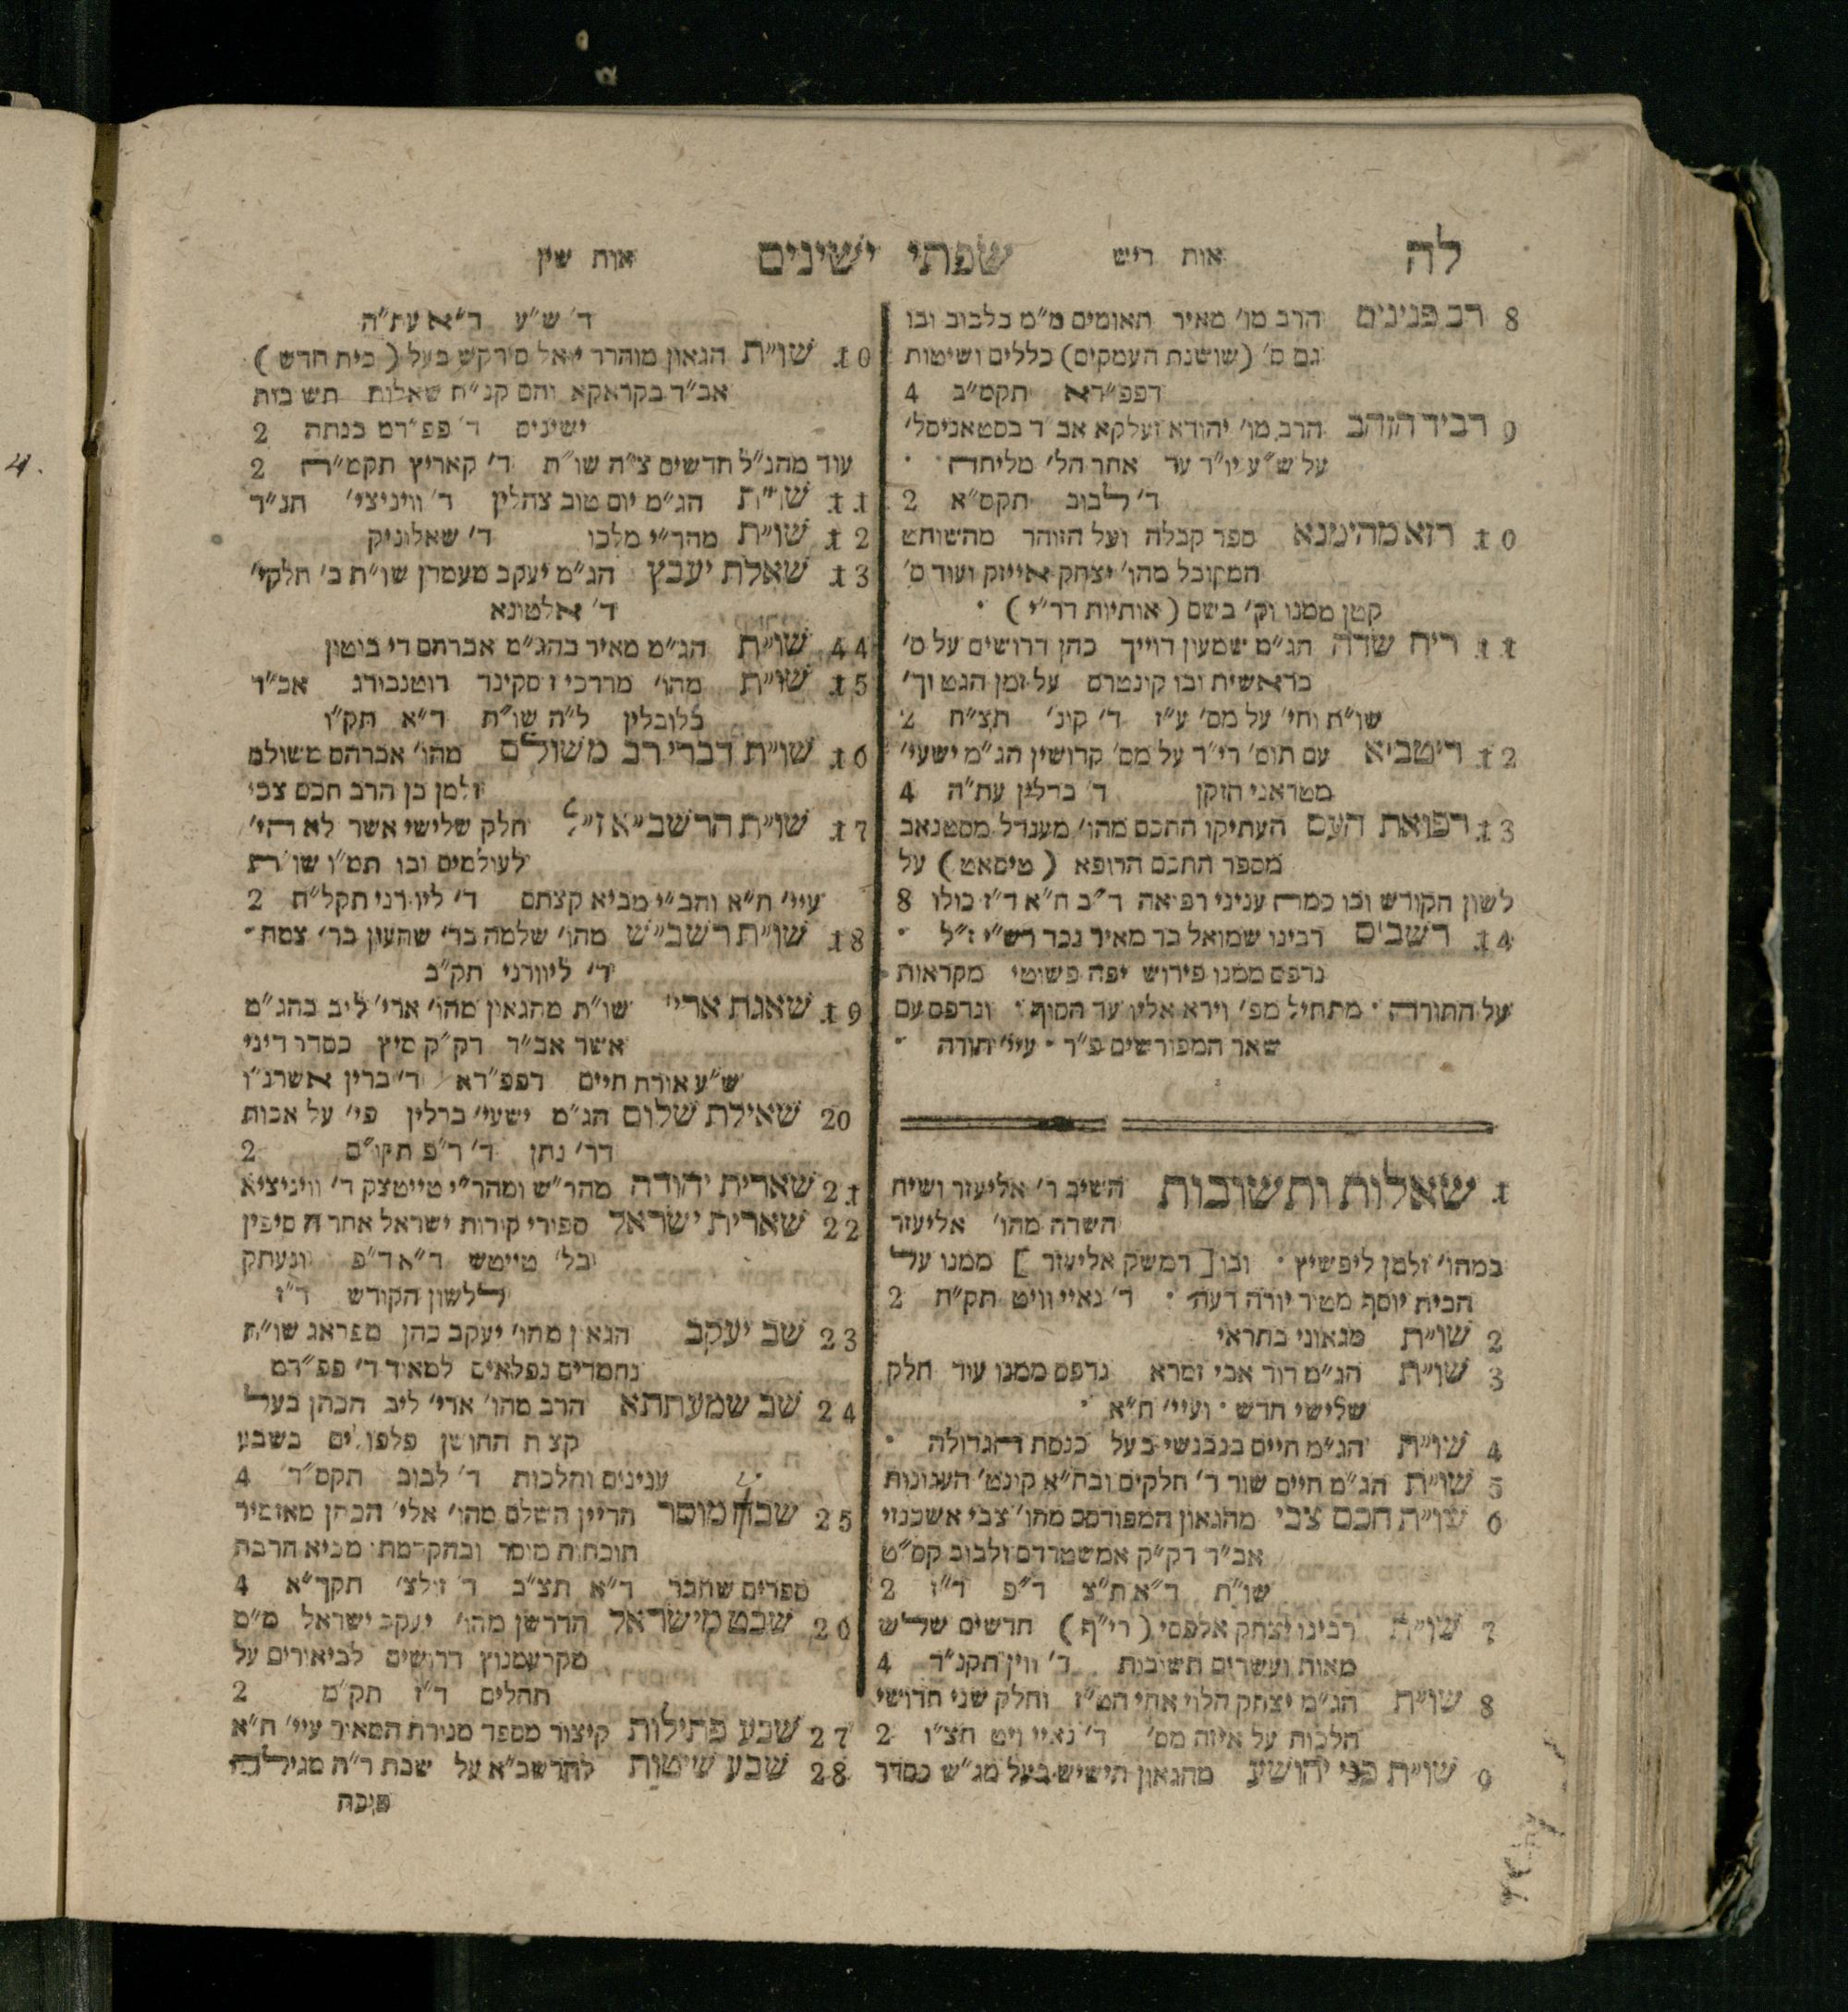 לה אות ריש שפתי ישינים אות שין
8 רב פנינים הרב מו׳ מאיר תאומים מ״מ בלבוב ובו
גם ס׳ (שושנת העמקים) כללים ושיטות
דפפ״דא תקמ״ב 4
9 רביד הזהב הרב מו׳ יהודא זעלקא אב״ד בסטאניסל׳
על ש״ע יו״ד עד אחר הל׳ מליחה ·
ד׳ לבוב תקס״א 2
10 רזא מהימנא ספר קבלה ועל הזוהר מהשוחט
המקובל מהו׳ יצחק אייזק ועוד ס׳
קטן ממנו וק׳ בשם (אותיות דר״י) ·
11 ריח שדה הג״מ שמעון דוייך כהן דרושים על ס׳
בראשית ובו קונטרס על זמן הגט וך׳
שו״ת וחי׳ על מס׳ ע״ז ד׳ קונ׳ תצ״ח 2
12 ריטביא עם תוס׳ רי״ד על מס׳ קדושין הג״מ ישעי׳
מטראני הזקן ד׳ ברלין עת״ה 4
13 רפואת העם העתיקו החכם מהו׳ מענדל מסטנאב
מספר החכם הרופא (טיסאט) על
לשון הקודש ובו כמה עניני רפואה ד״ב ח״א ד״ז כולו 8
14 רשבים רבינו שמואל בר מאיר נכד רש״י ז״ל ·
נדפס ממנו פירוש יפה פשוטי מקראות
על התורה · מתחיל מפ׳ וירא אליו עד הסוף · ונדפס עם
שאר המפורשים פ״ר · עיי׳ תורה ·
1 שאלות ותשובות השיב ר׳ אליעזר ושיח
השדה מהו׳ אליעזר
במהו׳ זלמן ליפשיץ · ובו [דמשק אליעזר] ממנו על
הבית יוסף מטור יורה דעה · ד׳ נאיי וויט תק״ח 2
2 שו״ת מגאוני בתראי
3 שו״ת הג״מ דוד אבי זמרא נדפס ממנו עוד חלק
שלישי חדש · ועיי׳ ח״א ·
4 שו״ת הג״מ חיים בנבנשי בעל כנסת הגדולה ·
5 שו״ת הג״מ חיים שור ד׳ חלקים ובח״א קונט׳ העגונות
6 שו״ת חכם צבי מהגאון המפורסם מהו׳ צבי אשכנזי
אב״ד דק״ק אמשטרדם ולבוב קס״ט
שו״ת ד״א ת״צ ד״פ ד״ז 2
7 שו״ת רבינו יצחק אלפסי (רי״ף) חדשים שלש
מאות ועשרים תשובות ד׳ ווין תקנ״ד 4
8 שו״ת הג״מ יצחק הלוי אחי הט״ז וחלק שני חדושי
הלכות על איזה מס׳ ד׳ נאיי ויט תצ״ו 2
9 שו״ת פני יהושע מהגאון הישיש בעל מג״ש כסדר
ד׳ ש״ע ד״א עת״ה
10 שו״ת הגאון מוהרר יואל סירקש בעל (בית חדש)
אב״ד בקראקא והם קנ״ח שאלות תשובות
ישינים ד׳ פפ״דם כנתה 2
עוד מהנ״ל חדשים צ״ה שו״ת ד׳ קאריץ תקמ״ה 2
11 שו״ת הג״מ יום טוב צהלין ד׳ וויניצי׳ תנ״ד
12 שו״ת מהר״י מלכו ד׳ שאלוניק
13 שאלת יעבץ הג״מ יעקב מעמדן שו״ת ב׳ חלקי׳
ד׳ אלטונא
44 שו״ת הג״מ מאיר בהג״מ אברהם די בוטון
15 שו״ת מהו׳ מרדכי זסקינד רוטנבורג אב״ד
בלובלין ל״ה שו״ת ד״א תק״ו
16 שו״ת דברי רב משולם מהו׳ אברהם משולם
זלמן בן הרב חכם צבי
17 שו״ת הרשב״א ז״ל חלק שלישי אשר לא הי׳
לעולמים ובו תמ״ו שו״ת
עיי׳ ח״א והב״י מביא קצתם ד׳ ליוורני תקל״ח 2
18 שו״ת רשב״ש מהו׳ שלמה בר׳ שמעון בר׳ צמח ·
ד׳ ליוורני תק״ב
19 שאגת ארי׳ שו״ת מהגאון מהו׳ ארי׳ ליב בהג״מ
אשר אב״ד דק״ק מיץ כסדר דיני
ש״ע אורח חיים דפפ״דא ד׳ ברין אשרנ״ו
20 שאילת שלום הג״מ ישעי׳ ברלין פי׳ על אבות
דר׳ נתן ד׳ ר״פ תקו״ם 2
21 שארית יהודה מהר״ש ומהר״י טייטצק ד׳ וויניציא
22 שארית ישראל ספורי קורות ישראל אחר ה סיפין
בל׳ טייטש ד״א ד״פ ונעתק
ללשון הקודש ד״ז
23 שב יעקב הגאון מהו׳ יעקב כהן מפראג שו״ת
נחמדים נפלאים למאוד ד׳ פפ״דם
24 שב שמעתתא הרב מהו׳ ארי׳ ליב הכהן בעל
קצת החושן פלפולים בשבע
ענינים והלכות ד׳ לבוב תקס״ד 4
25 שבט מוסר הדיין השלם מהו׳ אלי׳ הכהן מאזמיר
תוכחות מוסר ובהקדמת מביא הרבה
ספרים שחבר ד״א תצ״ב ד׳ זולצ׳ תקך״א 4
26 שבט מישראל הדרשן מהו׳ יעקב ישראל מ״מ
מקרעמנוץ דרושים לביאורים על
תהלים ד״ז תק״מ 2
27 שבע פתילות קיצור מספר מנורת המאור עיי׳ ח״א
28 שבע שיטות להרשב״א על שבת ר״ה מגילה
סוכה